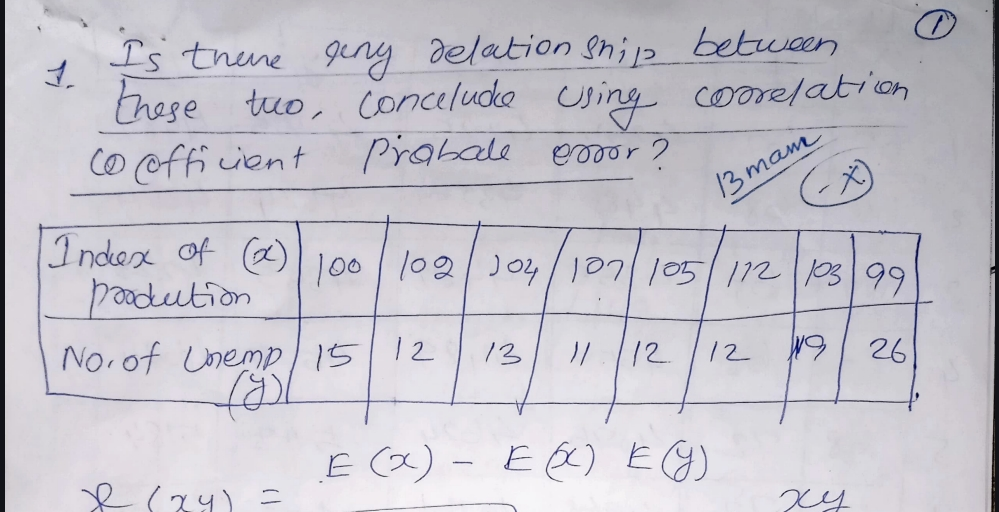 ①
1. Is there any relationship between
these two, conclude using correlation
coefficient Probale error?
13 mam
Index of (x) production 100 102 104 107 105 112 103 99
No. of Unemp (y) 15 12 13 11 12 12 19 26
E(x) - E(x) E(y)
(xy) = xy